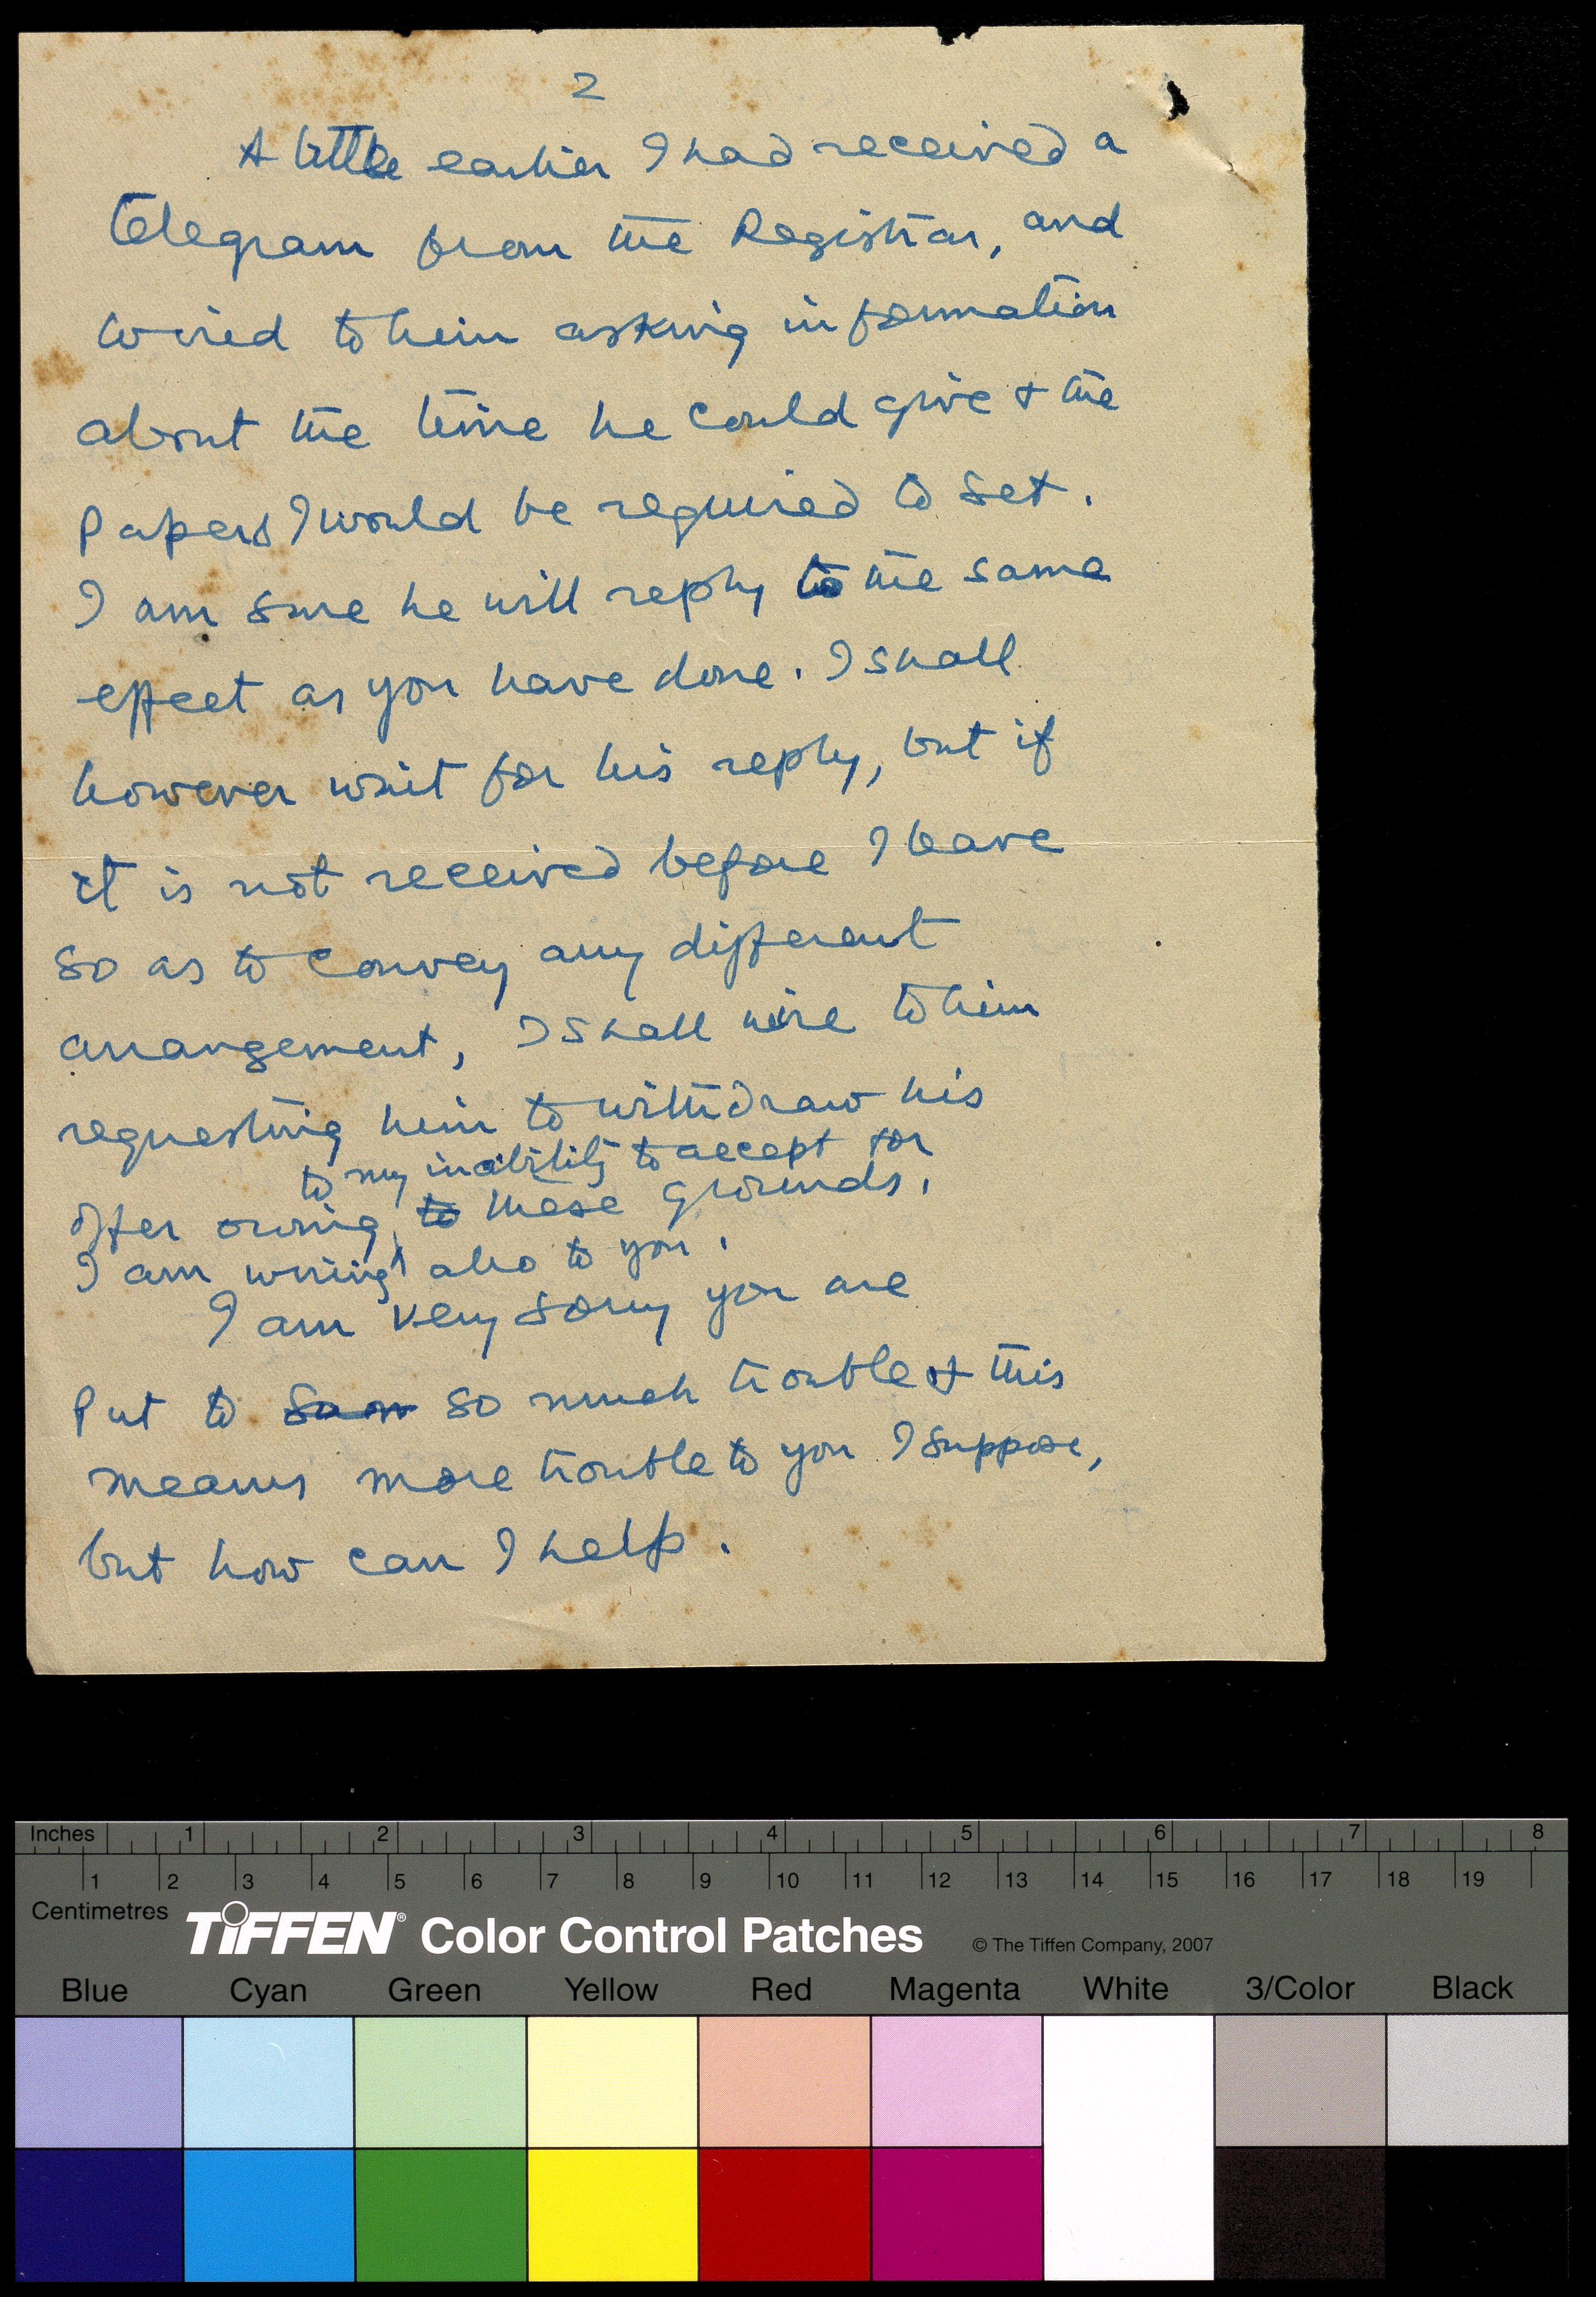 2
A little earlier I had received a
telegram from the Registrar, and
wired to him asking information
about the time he could give & the
papers I would be required to set.
I am sure he will reply to the same
effect as you have done. I shall
however wait for his reply, but if
it is not received before I leave
so as to convey any different
arrangement, I shall wire to him
requesting him to withdraw his
to my inability to accept for
offer owing to these grounds.
I am wiring also to you.
I am very sorry you are
put to so much trouble & this
means more trouble to you I suppose,
but how can I help.
Inches 1 2 3 4 5 6 7 8
1 2 3 4 5 6 7 8 9 10 11 12 13 14 15 16 17 18 19
Centimetres
TIFFEN® Color Control Patches © The Tiffen Company, 2007
Blue Cyan Green Yellow Red Magenta White 3/Color Black